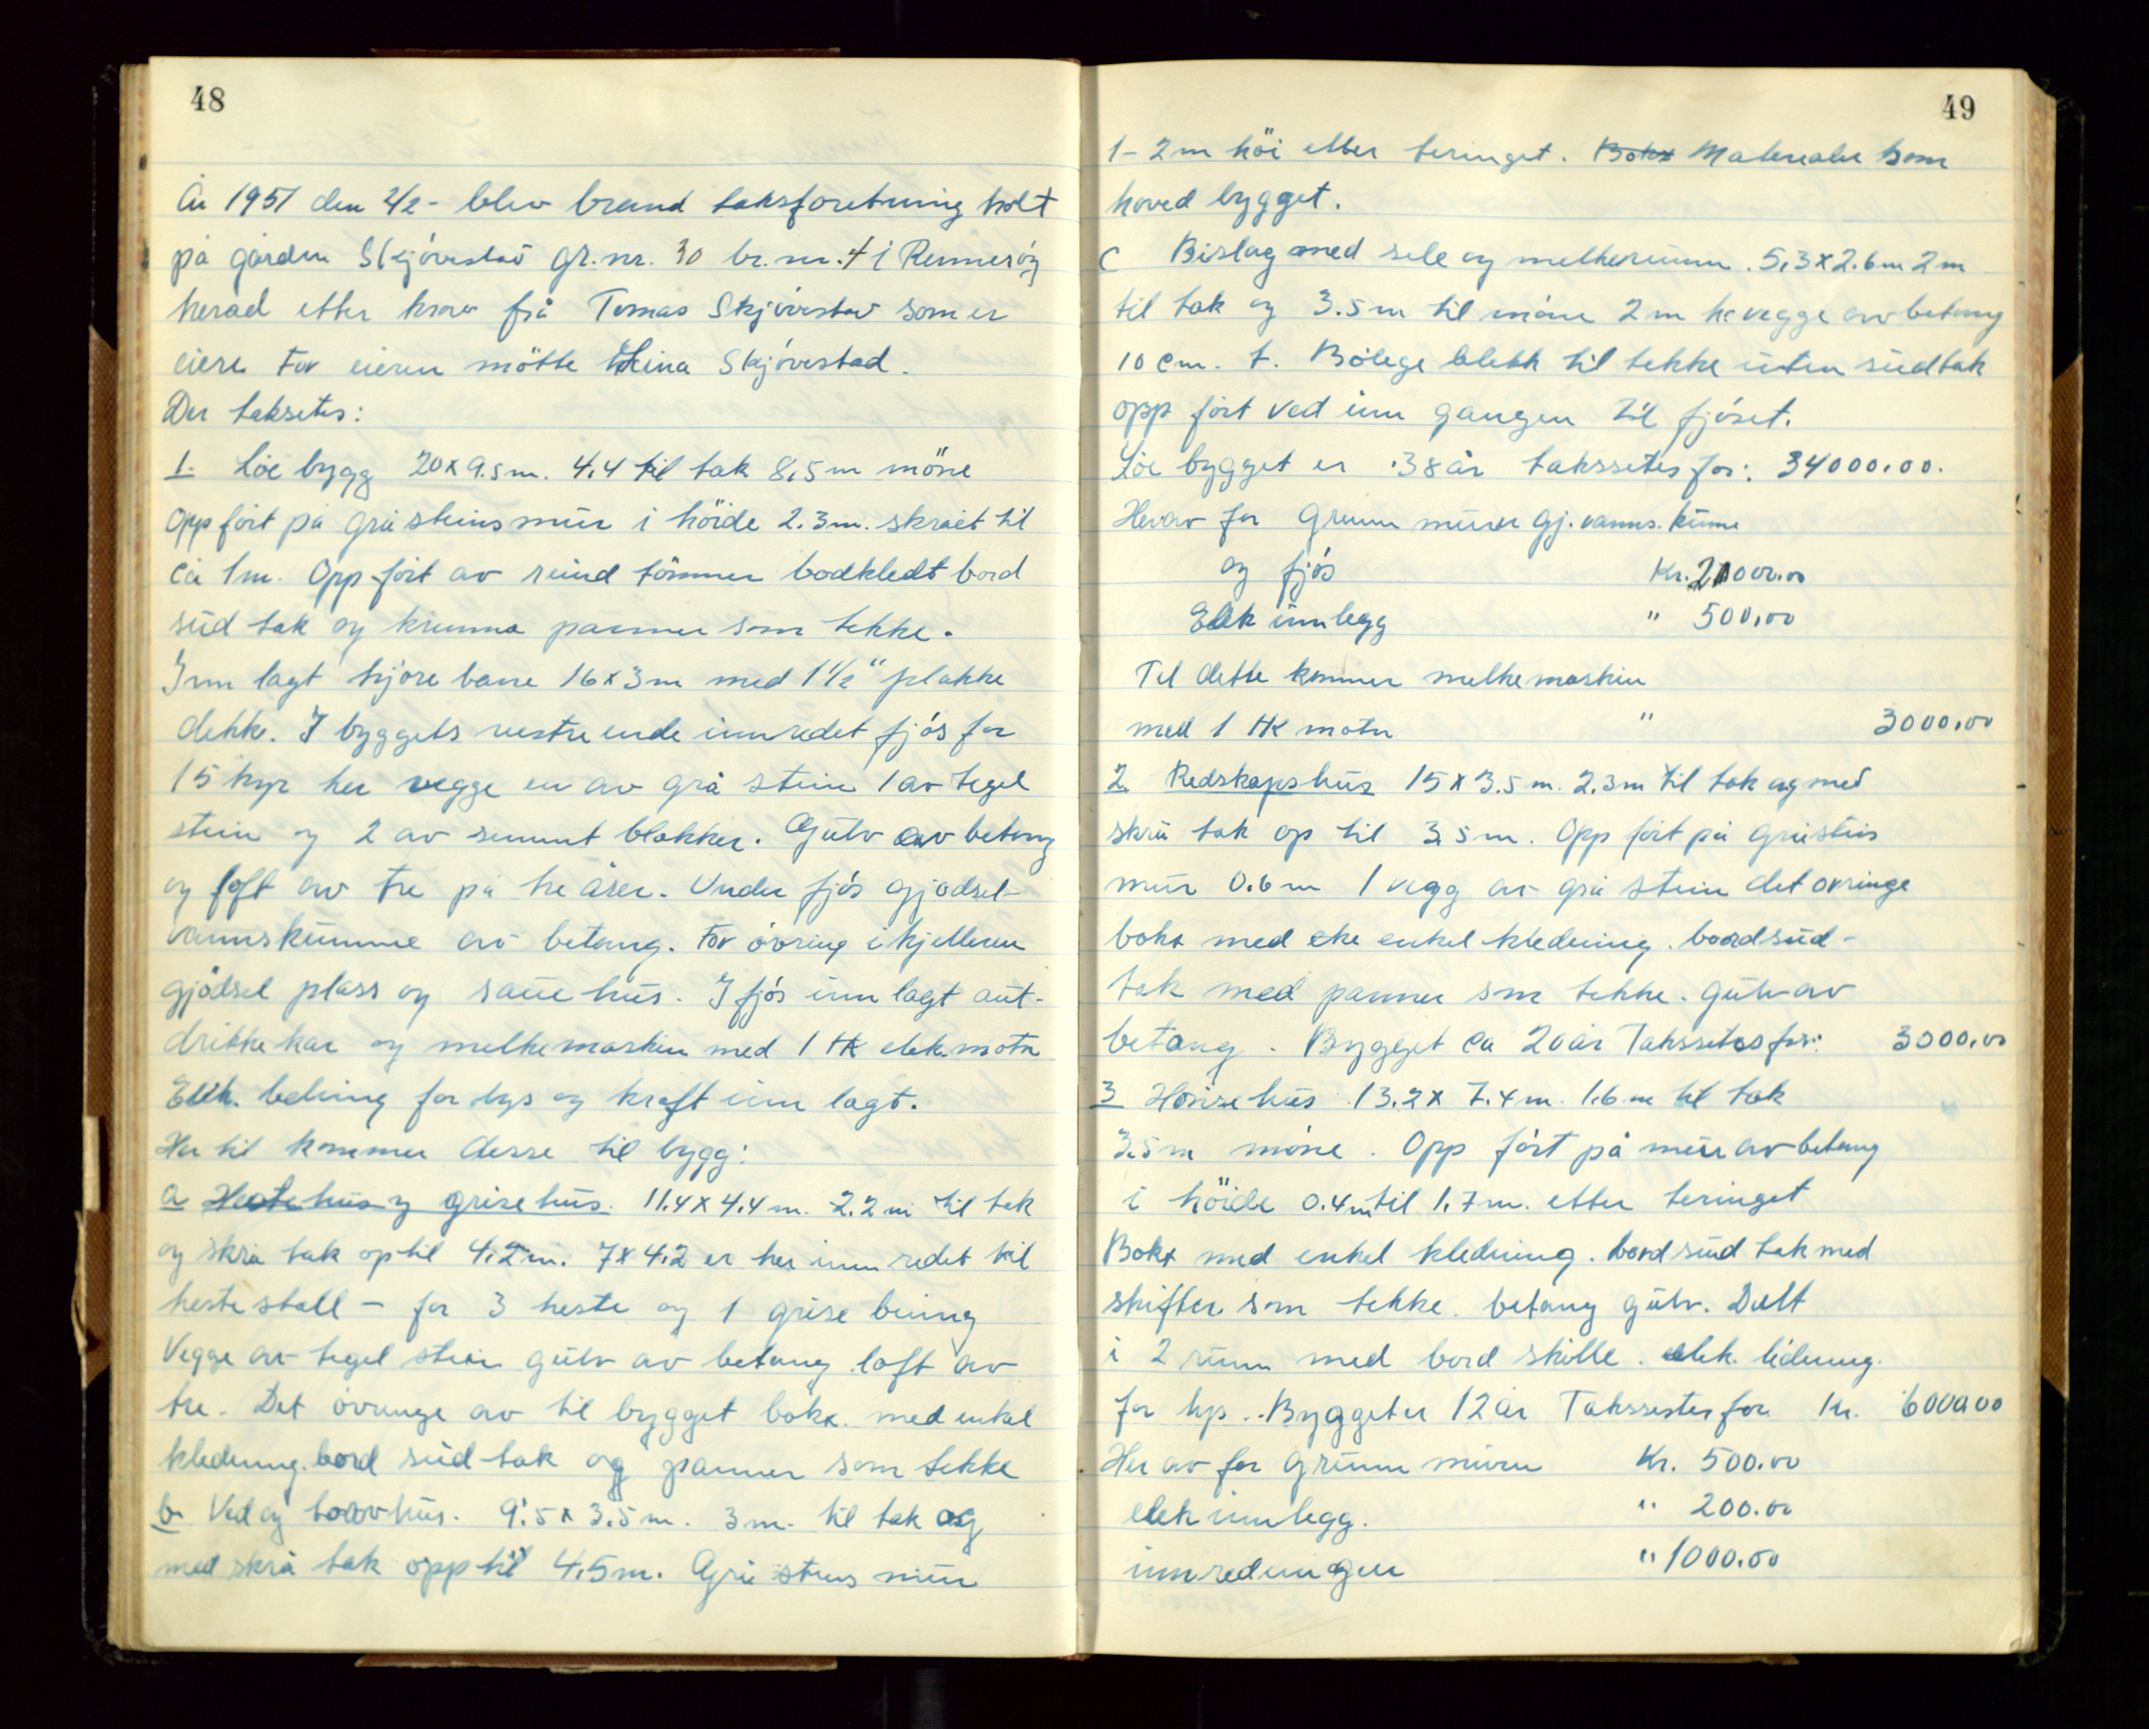 48
År 1951 den 2/2 - blev brand taksforetning holt
på gården Skjövestad gr.nr. 30 br.nr. 4 i Rennesöy
herad etter krav frå Tomas Skjövestad som er
eiere. For eieren mötte Lina Skjövestad.
Der taksetes:
1. Löe bygg 20x9.5m. 4,4 til tak 8,5m möne
Opp fört på gråsteins mur i höide 2.3m. skrået til
ca 1m. Opp fört av rund tömmer bodkledt bord
sud tak og krumma panner som tekke.
Inn lagt kjöre bane 16x3m med 1½" plakke
dekk. I byggets vestre ende innredet fjös for
15 kyr her vegge en av grå stein 1 av tegel
stein og 2 av sement blokker. Gulv av betong
og loft av tre på tre åser. Under fjös gjödsel-
vannskumme av betong. For övring i kjelleren
gjödsel plass og saue hus. I fjös inn lagt aut-
drikke kar og melkemaskin med 1 HK elek. motor
Elek. ledning for lys og kraft inn lagt.
Her til kommer desse til bygg:
a Hestehus og grisehus. 11.4x4.4m. 2.2m til tak
og skrå tak op til 4,2m. 7x4.2 er her innredet til
heste stall - for 3 heste og 1 grise bining
Vegge av tegel stein gulv av betong loft av
tre. Det övringe av til bygget bokx. med enkel
kledning. bord sud-tak og panner som tekke
b. Ved og torvhus. 9.5x3.5m. 3m. til tak og
med skrå tak opp til 4.5m. Grå steins mur
49
1-2m höi etter teringet. Bokx Materialer som
hoved bygget.
C Bislag med sele og melkerumm. 5.3x2.6m 2m
til tak og 3.5m til möne 2m h. vegge av betong
10 cm. t. Bölege blekk til tekke uten sudtak
opp fört ved inn gangen til fjöset.
Löe bygget er 38 år takssetes for: 34000.00.
Herav for Grunn murer gj. vanns. kumme
og fjös Kr. 21000.00
Elek innlegg " 500,00
Til dette kommer melkemaskin
med 1 HK motor " 3000,00
2. Redskapshus 15x3.5m. 2.3m til tak og med
skrå tak op til 3.5m. Opp fört på gråsteins
mur 0.6m 1 vegg av grå stein det övringe
bokx med eke enkel kledning. boordsud-
tak med panner som tekke. gulv av
betong. Bygget ca 20 år Takssetes for: 3000,00
3 Hönsehus 13.2x7.4m. 1.6m til tak
3.5m möne. Opp fört på mur av betong
i höide 0.4m til 1.7m. etter teringet
Bokx med enkel kledning. bord sud tak med
skifter som tekke. betong gulv. Delt
i 2 rumm med bord skille. elek. ledning.
for lys.. Bygget er 12 år Takssestes for Kr. 6000.00
Her av for grunn muren Kr. 500.00
elek innlegg. " 200.00
innredningen " 1000.00